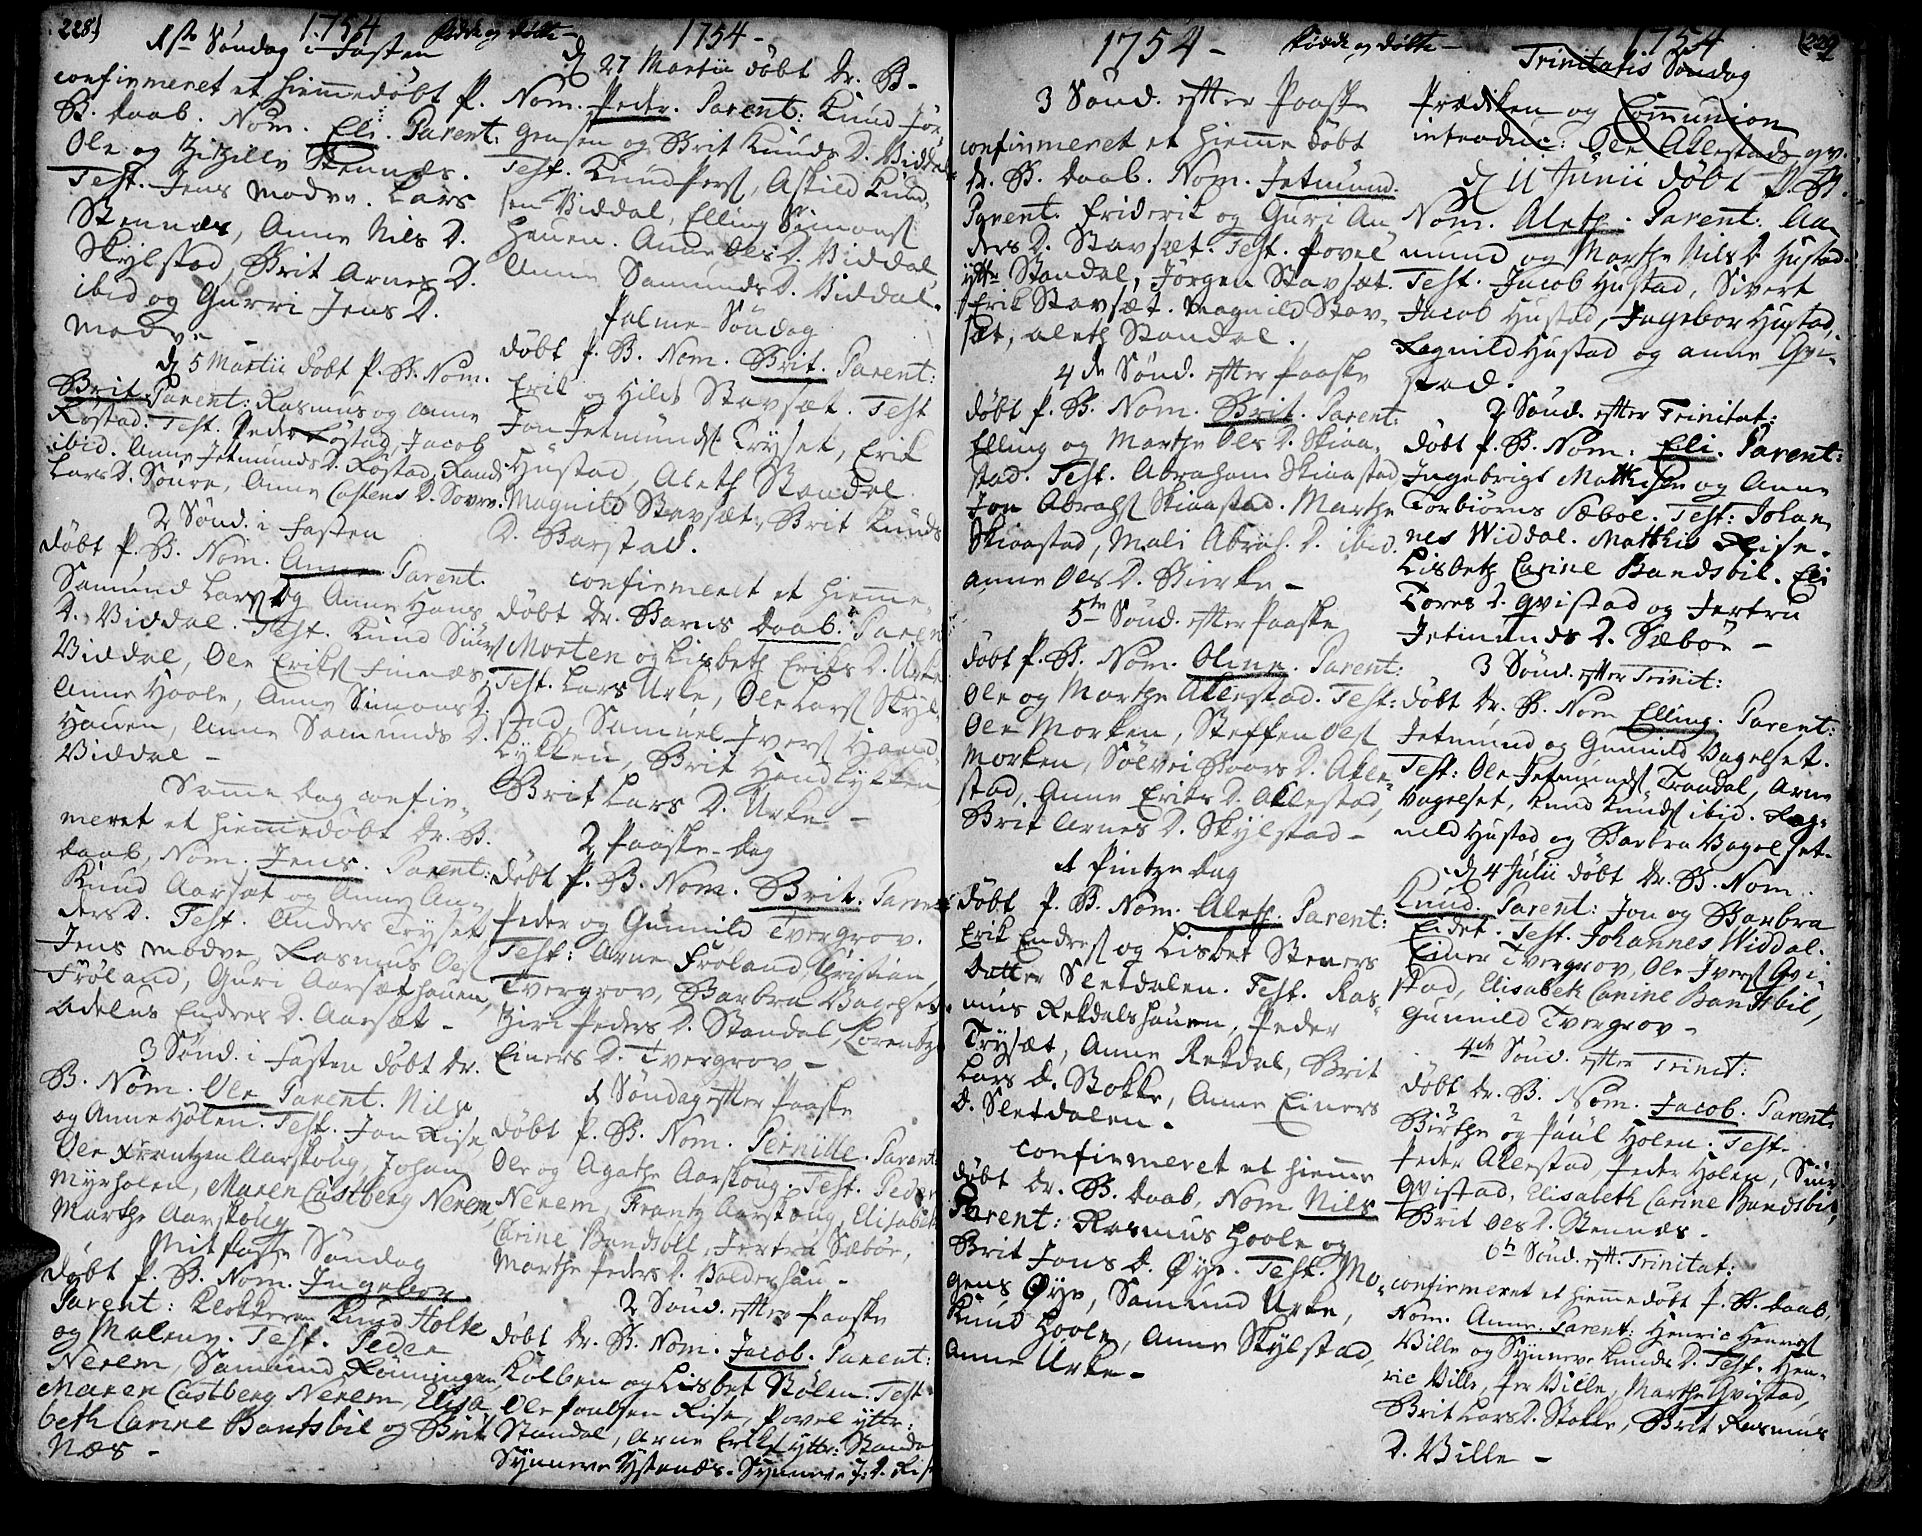 228)
1754
fødde og døbte -
1754 -
1ste Søndag i Fasten
confirmeret et hiemmedøbt P.
B. daab. Nom. Eli. Parent:
Ole og Zizille Stennes.
Test. Jens Modve. Lars
Stennes, Anne Nils D.
Skylstad, Brit Arnes D.
ibid og Gurri Jens D.
Modve -
d 5 Martii døbt P. B. Nom.
Brit. Parent: Rasmus og Anne
Røstad: Test. Peder Røstad, Jacob
ibid. Anne Jetmunds D. Røstad, Randi
Lars D. Soure, Anne Castens D. Sovre.
2 Sønd. i Fasten
døbt P. B. Nom. Anne. Parent.
Samund Lars og Anne Hans
D. Viddal. Test. Knud Siurs
Viddal, Ole Eriks Finnes,
Anne Hoole, Anne Simons D.
Hauen, Anne Samunds D.
Viddal -
Samme dag confir-
meret et hiemmedøbt Dr. B.
daab, Nom. Jens. Parent:
Knud Aarsæt og Anne An-
ders D. Test. Anders Tryset
Jens Modve, Rasmus Oles
Frøland, Guri Aarsæthauen,
Adelus Endres D. Aarsæt -
3 Sønd. i Fasten døbt Dr.
B. Nom. Ole Parent. Nils
og Anne Holen. Test. Jon Rise
Ole Frantzen Aarskoug, Johan
Myrholen, Maren Castberg Nerem,
Marthe Aarskoug
Mitfaste Søndag
døbt P. B. Nom. Ingebor.
Parent: Klokkeren Knud Holte
og Malene. Test. Peder
Nerem, Samund Rønningen,
Maren Castberg Nerem, Elisa
beth Carine Bandsbil og Brit
Næs -
d 27 Martii døbt Dr. B.
Nom. Peder. Parent: Knud Jør
gensen og Brit Knuds D. Viddal.
Test. Knud Pers, Askild Knud
sen Viddal, Elling Simons
Hauen. Anne Oles D. Viddal
Anne Samunds D. Viddal.
Palme-Søndag
døbt P. B. Nom. Brit. Parent:
Erik og Hild Stavsæt. Test
Jon Jetmunds Tryset, Erik
Hustad, Aleth Standal
Magnild Stavsæt, Brit Knuds
D. Barstad.
confirmeret et hiemme-
døbt Dr. Barns daab. Paren
Morten og Lisbeth Eriks D. Urke
Test. Lars Urke, Ole Lars Skyl
stad, Samuel Ivers Haand
lykken, Brit Hendlykken
Brit Lars D. Urke -
2 Paaske-dag
døbt P. B. Nom. Brit. Parent
Peder og Gunnild Tvergrov.
Test: Arne Frøland Christian
Tvergrov, Barbra Vagelset,
Ziri Peders D. Standal, Lorentze
Einers D. Tvergrov -
1 Søndag efter Paaske
døbt P. B. Nom. Pernille. Parent
Ole og Agathe Aarskoug. Test. Peder
Nerem, Frantz Aarskoug, Elisabeth
Carine Bandsbil, Jertru Sæbøe,
Marthe Peders D. Baldershau -
2 Sønd. efter Paaske
døbt Dr. B. Nom. Jacob. Parent:
Kolben og Lisbet Stølen: Test
Ole Paulsen Rise, Povel yttr:
Standal, Arne Eriks yttr: Standal
Synneve Ystenæs. Synneve J: D. Rise
1754 -
fødde og døbte -
1754
(229
3 Sønd. efter Paaske
confirmeret et hiemme døbt
Dr. B. daab. Nom. Jetmund.
Parent. Friderik og Guri An
ders D. Stavsæt. Test. Povel
ytte Standal, Jørgen Stavsæt.
Erik Stavsæt. Magnild Stav-
sæt, Aleth Standal.
4de Sønd. efter Paaske
døbt P. B. Nom. Brit. Parent:
Elling og Marthe Oles D. Skiaa-
stad. Test. Abraham Skiaastad
Jon Abrahs Skiaastad. Marthe
Skiaastad, Mali Abrah. D. ibid.
Anne Oles D. Kirke -
5te Sønd. efter Paaske
døbt P. B. Nom. Oline. Parent:
Ole og Marthe Aklestad. Test:
Ole Morken, Steffen Oles
Morken, Sølvei Baars D. Akle-
stad, Anne Eriks D. Aklestad,
Brit Arnes D. Skylstad -
1 Pintze dag
døbt P. B. Nom. Aleth. Parent:
Erik Endres og Lisbet Steners
Datter Sletdalen. Test. Ras-
mus Rekdalshauen, Peder
Trysæt, Anne Rekdal, Brit
Lars D. Stokke, Anne Einers
D. Sletdalen.
confirmeret et hiemme
døbt Dr. B. daab, Nom Nils
Parent: Rasmus Hoole og
Brit Jons D. Øye. Test. Mo-
gens Øye, Samund Urke,
Knud Hoole, Anne Skylstad,
Anne Urke -
Trinitatis Søndag
Prædiken og Communion
introduc: Ole Aklestads qv.
d 11 Junii døbt P. B.
Nom. Aleth. Parent: Aa
mund og Marthe Nils D. Hustad
Test. Jacob Hustad, Sivert
Jacob Hustad, Ingebor Hustad,
Ragnild Hustad og Anne Qvi-
stad.
2 Sønd. efter Trinitat:
døbt P. B. Nom. Eli. Parent:
Ingebrigt Matthisen og Anne
Torbiørns Sæboe. Test: Johan
nes Widdal. Matthis Rise.
Lisbeth Carine Bandsbil. Eli
Tores D. Qvistad og Jertru
Jetmunds D. Sæbøe -
3 Sønd. efter Trinit:
døbt Dr. B. Nom Elling. Parent:
Jetmund og Gunnild Vagelset.
Test: Ole Jetmunds Trandal, Arne
Vagelset, Knud Knuds ibid. Rag-
nild Hustad og Barbra Vagelset.
d 4 Julii døbt Dr. B. Nom.
Knud. Parent: Jon og Barbra
Eidet. Test. Johannes Widdal.
Einer Tvergrov, Ole Ivers Qvi
stad, Elisabeth Carine Bandsbil,
Gunnild Tvergrov -
4de Sønd. efter Trinit:
døbt Dr. B. Nom. Jacob. Parent:
Birthe og Paul Holen. Test.
Peder Aklestad, Peder Holen, Siur
Qvistad, Elisabeth Carine Bandsbil,
Brit Oles D. Stennes -
6te Sønd. eft. Trinitat:
confirmeret et hiemmedøbt P. B. daab,
Nom. Anne. Parent: Henric Hennes
Ville og Synneve Knuds D. Test. Hen-
ric Ville, Per Ville, Marthe Qvistad,
Brit Lars D. Stokke, Brit Rasmus
D. Ville -